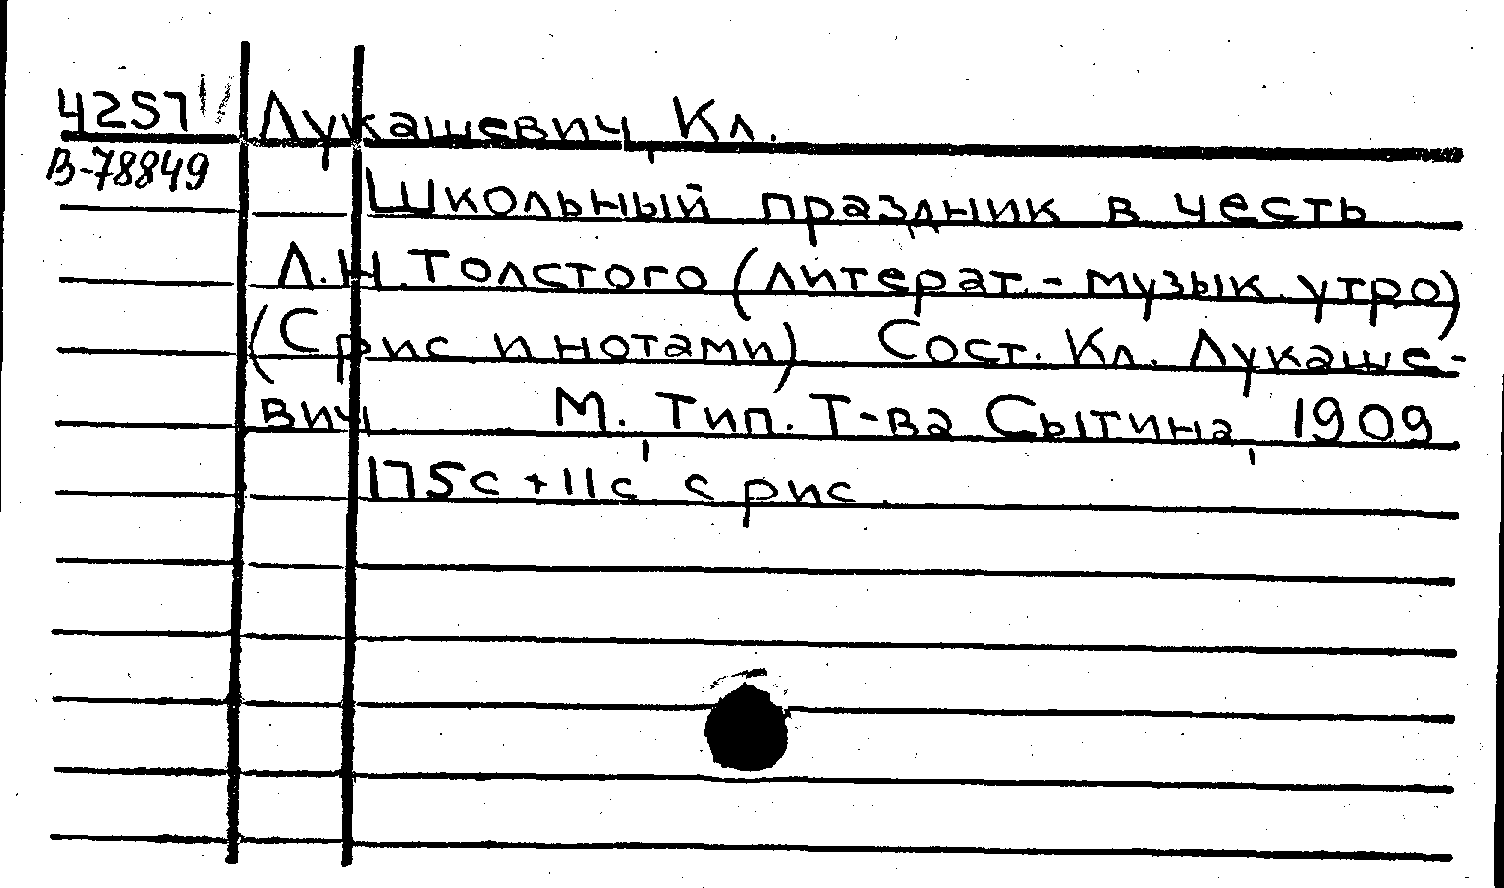 4257 Лукашевич, Кл.
В-78849
Школьный праздник в честь
Л.Н.Толстого (литерат.-музык. утро)
(С рис и нотами) Сост. Кл. Лукаше-
вич. М., Тип. Т-ва Сытина, 1909
175с +11с с рис.